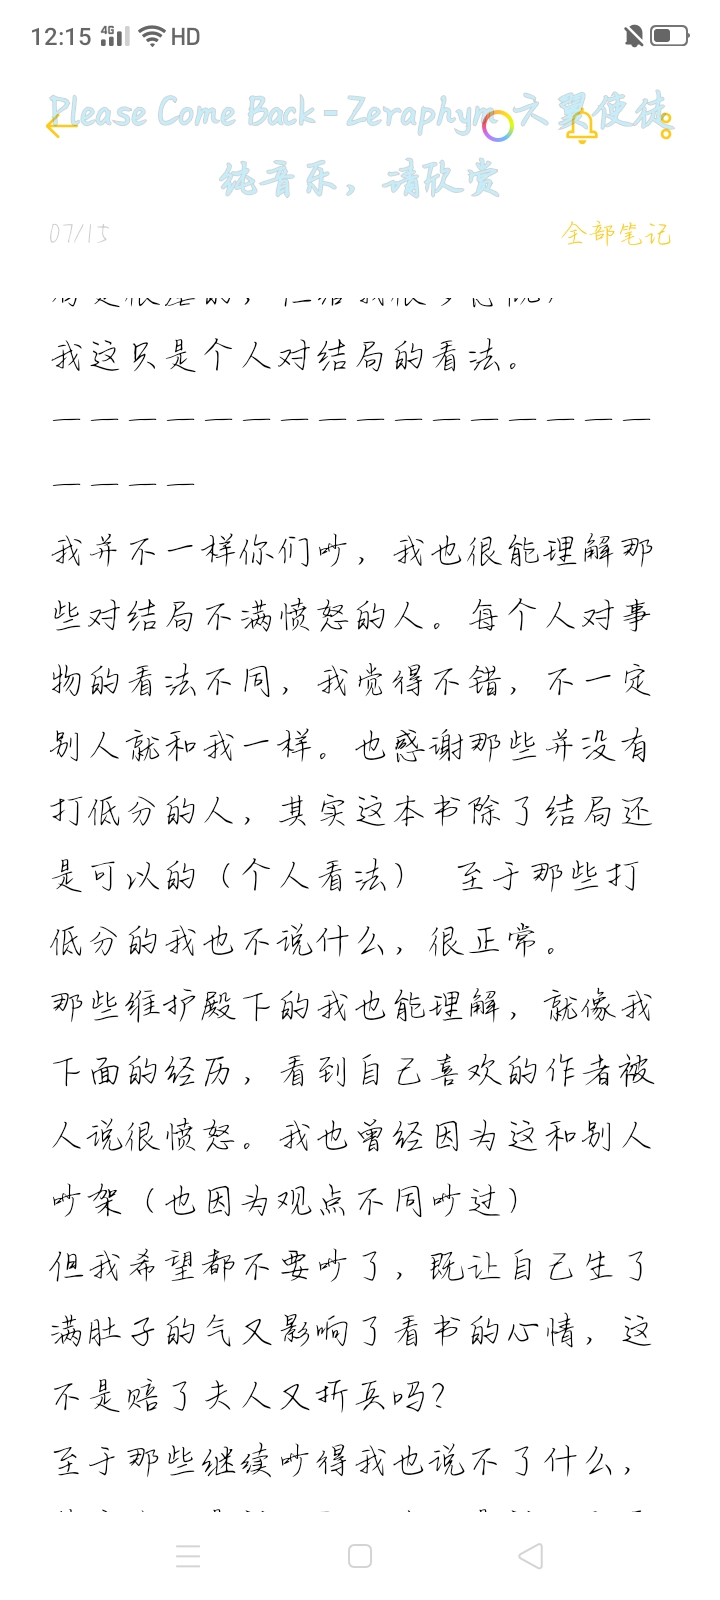 12:15 4G HD
Please Come Back - Zeraphym 六翼使徒
纯音乐，请欣赏
07/15 全部笔记
我这只是个人对结局的看法。
————————————————
————
我并不一样你们吵，我也很能理解那
些对结局不满愤怒的人。每个人对事
物的看法不同，我觉得不错，不一定
别人就和我一样。也感谢那些并没有
打低分的人，其实这本书除了结局还
是可以的（个人看法） 至于那些打
低分的我也不说什么，很正常。
那些维护殿下的我也能理解，就像我
下面的经历，看到自己喜欢的作者被
人说很愤怒。我也曾经因为这和别人
吵架（也因为观点不同吵过）
但我希望都不要吵了，既让自己生了
满肚子的气又影响了看书的心情，这
不是赔了夫人又折兵吗？
至于那些继续吵得我也说不了什么，